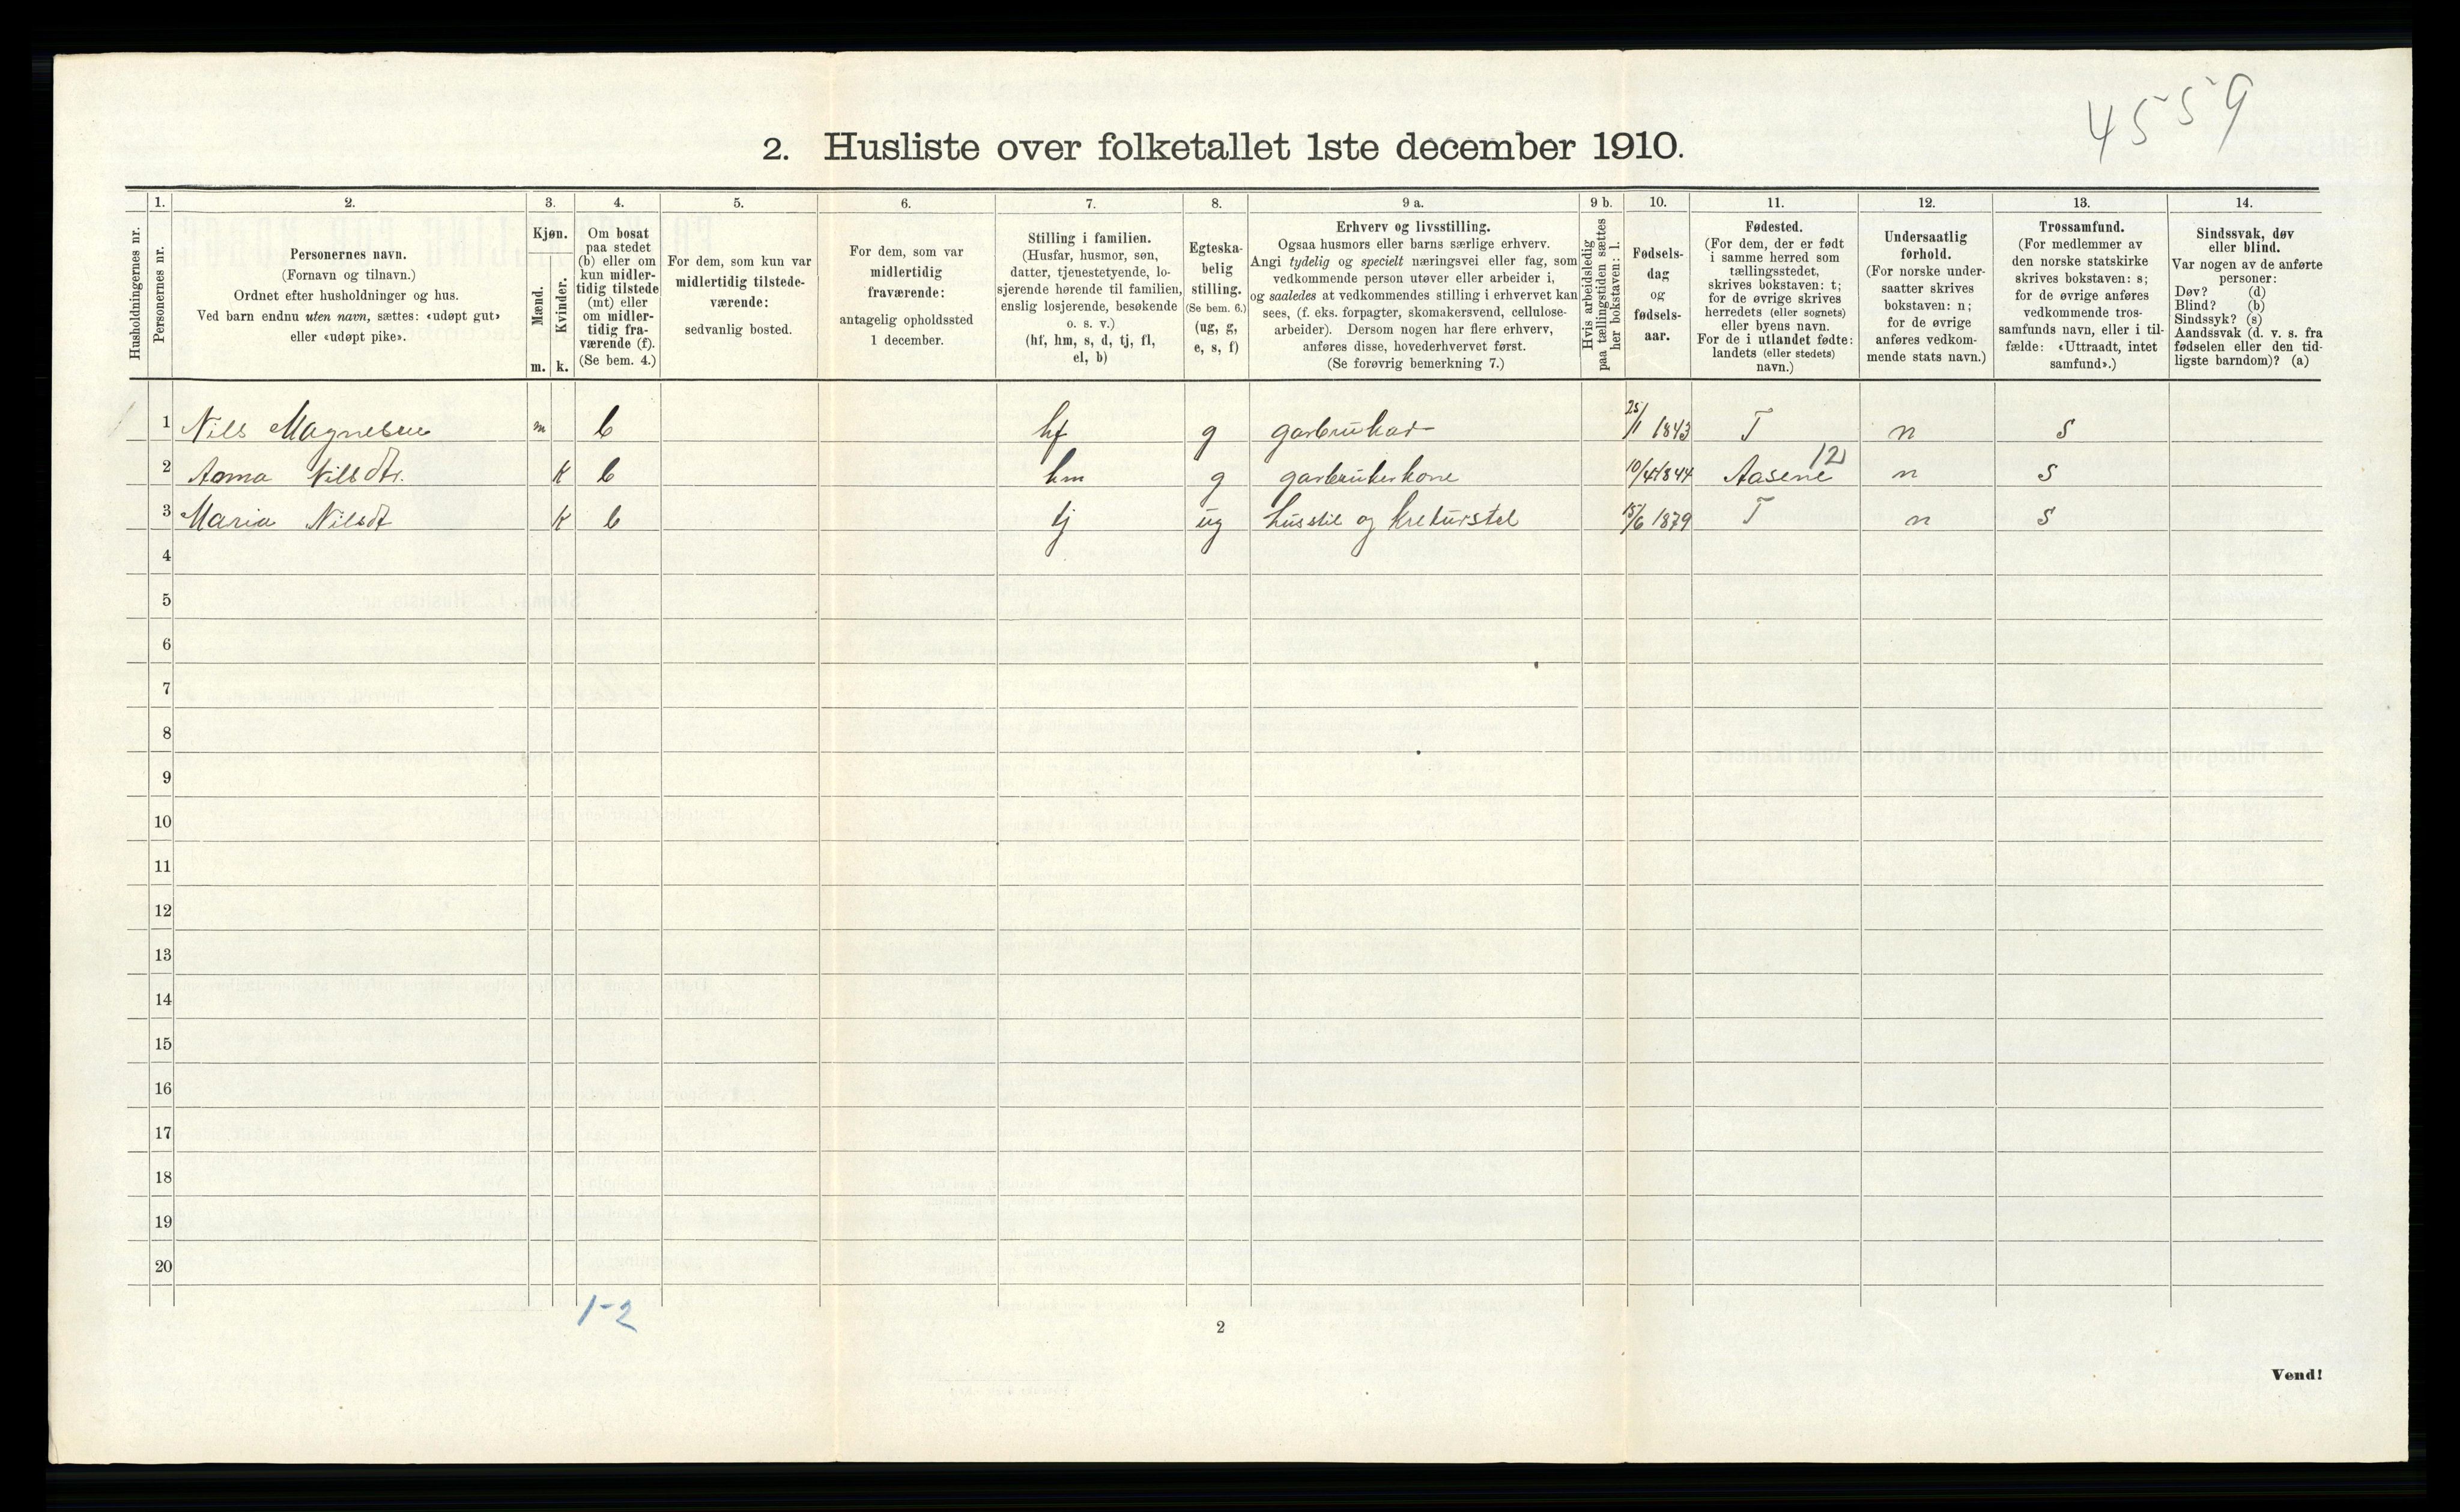 4559
2. Husliste over folketallet 1ste december 1910.
Husholdningernes nr.
1.
Personernes nr.
2.
Personernes navn.
(Fornavn og tilnavn.)
Ordnet efter husholdninger og hus.
Ved barn endnu uten navn, sættes: «udøpt gut»
eller «udøpt pike».
3.
Kjøn.
Mænd.
Kvinder.
m. k.
4.
Om bosat
paa stedet
(b) eller om
kun midler-
tidig tilstede
(mt) eller
om midler-
tidig fra-
værende (f).
(Se bem. 4.)
5.
For dem, som kun var
midlertidig tilstede-
værende:
sedvanlig bosted.
6.
For dem, som var
midlertidig
fraværende:
antagelig opholdssted
1 december.
7.
Stilling i familien.
(Husfar, husmor, søn,
datter, tjenestetyende, lo-
sjerende hørende til familien,
enslig losjerende, besøkende
o. s. v.)
(hf, hm, s, d, tj, fl,
el, b)
8.
Egteska-
belig
stilling.
(Se bem. 6.)
(ug, g,
e, s, f)
9 a.
Erhverv og livsstilling.
Ogsaa husmors eller barns særlige erhverv.
Angi tydelig og specielt næringsvei eller fag, som
vedkommende person utøver eller arbeider i,
og saaledes at vedkommendes stilling i erhvervet kan
sees, (f. eks. forpagter, skomakersvend, cellulose-
arbeider). Dersom nogen har flere erhverv,
anføres disse, hovederhvervet først.
(Se forøvrig bemerkning 7.)
9 b.
Hvis arbeidsledig
paa tællingstiden sættes
her bokstaven: l.
10.
Fødsels-
dag
og
fødsels-
aar.
11.
Fødested.
(For dem, der er født
i samme herred som
tællingsstedet,
skrives bokstaven: t;
for de øvrige skrives
herredets (eller sognets)
eller byens navn.
For de i utlandet fødte:
landets (eller stedets)
navn.)
12.
Undersaatlig
forhold.
(For norske under-
saatter skrives
bokstaven: n;
for de øvrige
anføres vedkom-
mende stats navn.)
13.
Trossamfund.
(For medlemmer av
den norske statskirke
skrives bokstaven: s;
for de øvrige anføres
vedkommende tros-
samfunds navn, eller i til-
fælde: «Uttraadt, intet
samfund».)
14.
Sindssvak, døv
eller blind.
Var nogen av de anførte
personer:
Døv? (d)
Blind? (b)
Sindssyk? (s)
Aandssvak (d. v. s. fra
fødselen eller den tid-
ligste barndom)? (a)
1 Nils Magnesen m b hf g garbrukar 25/1 1843 T n S
12
2 Anna Nilsdtr. K b hm g garbrukerkone 10/4 1844 Aasene n S
3 Maria Nilsdt K b tj ug husstil og kreturstel 15/6 1879 T n S
4
5
6
7
8
9
10
11
12
13
14
15
16
17
18
19
20
1-2
2
Vend!